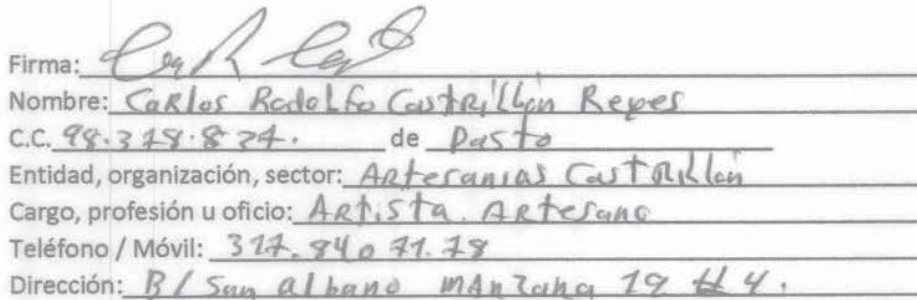 Firma:
Nombre: Carlos Rodolfo Castrillón Reyes
C.C. 98.378.834. de Pasto
Entidad, organización, sector: Artesanias Castrillon
Cargo, profesión u oficio: Artista. Artesano
Teléfono / Móvil: 317.840 71.78
Dirección: B/ San albano manzana 19 # 4.